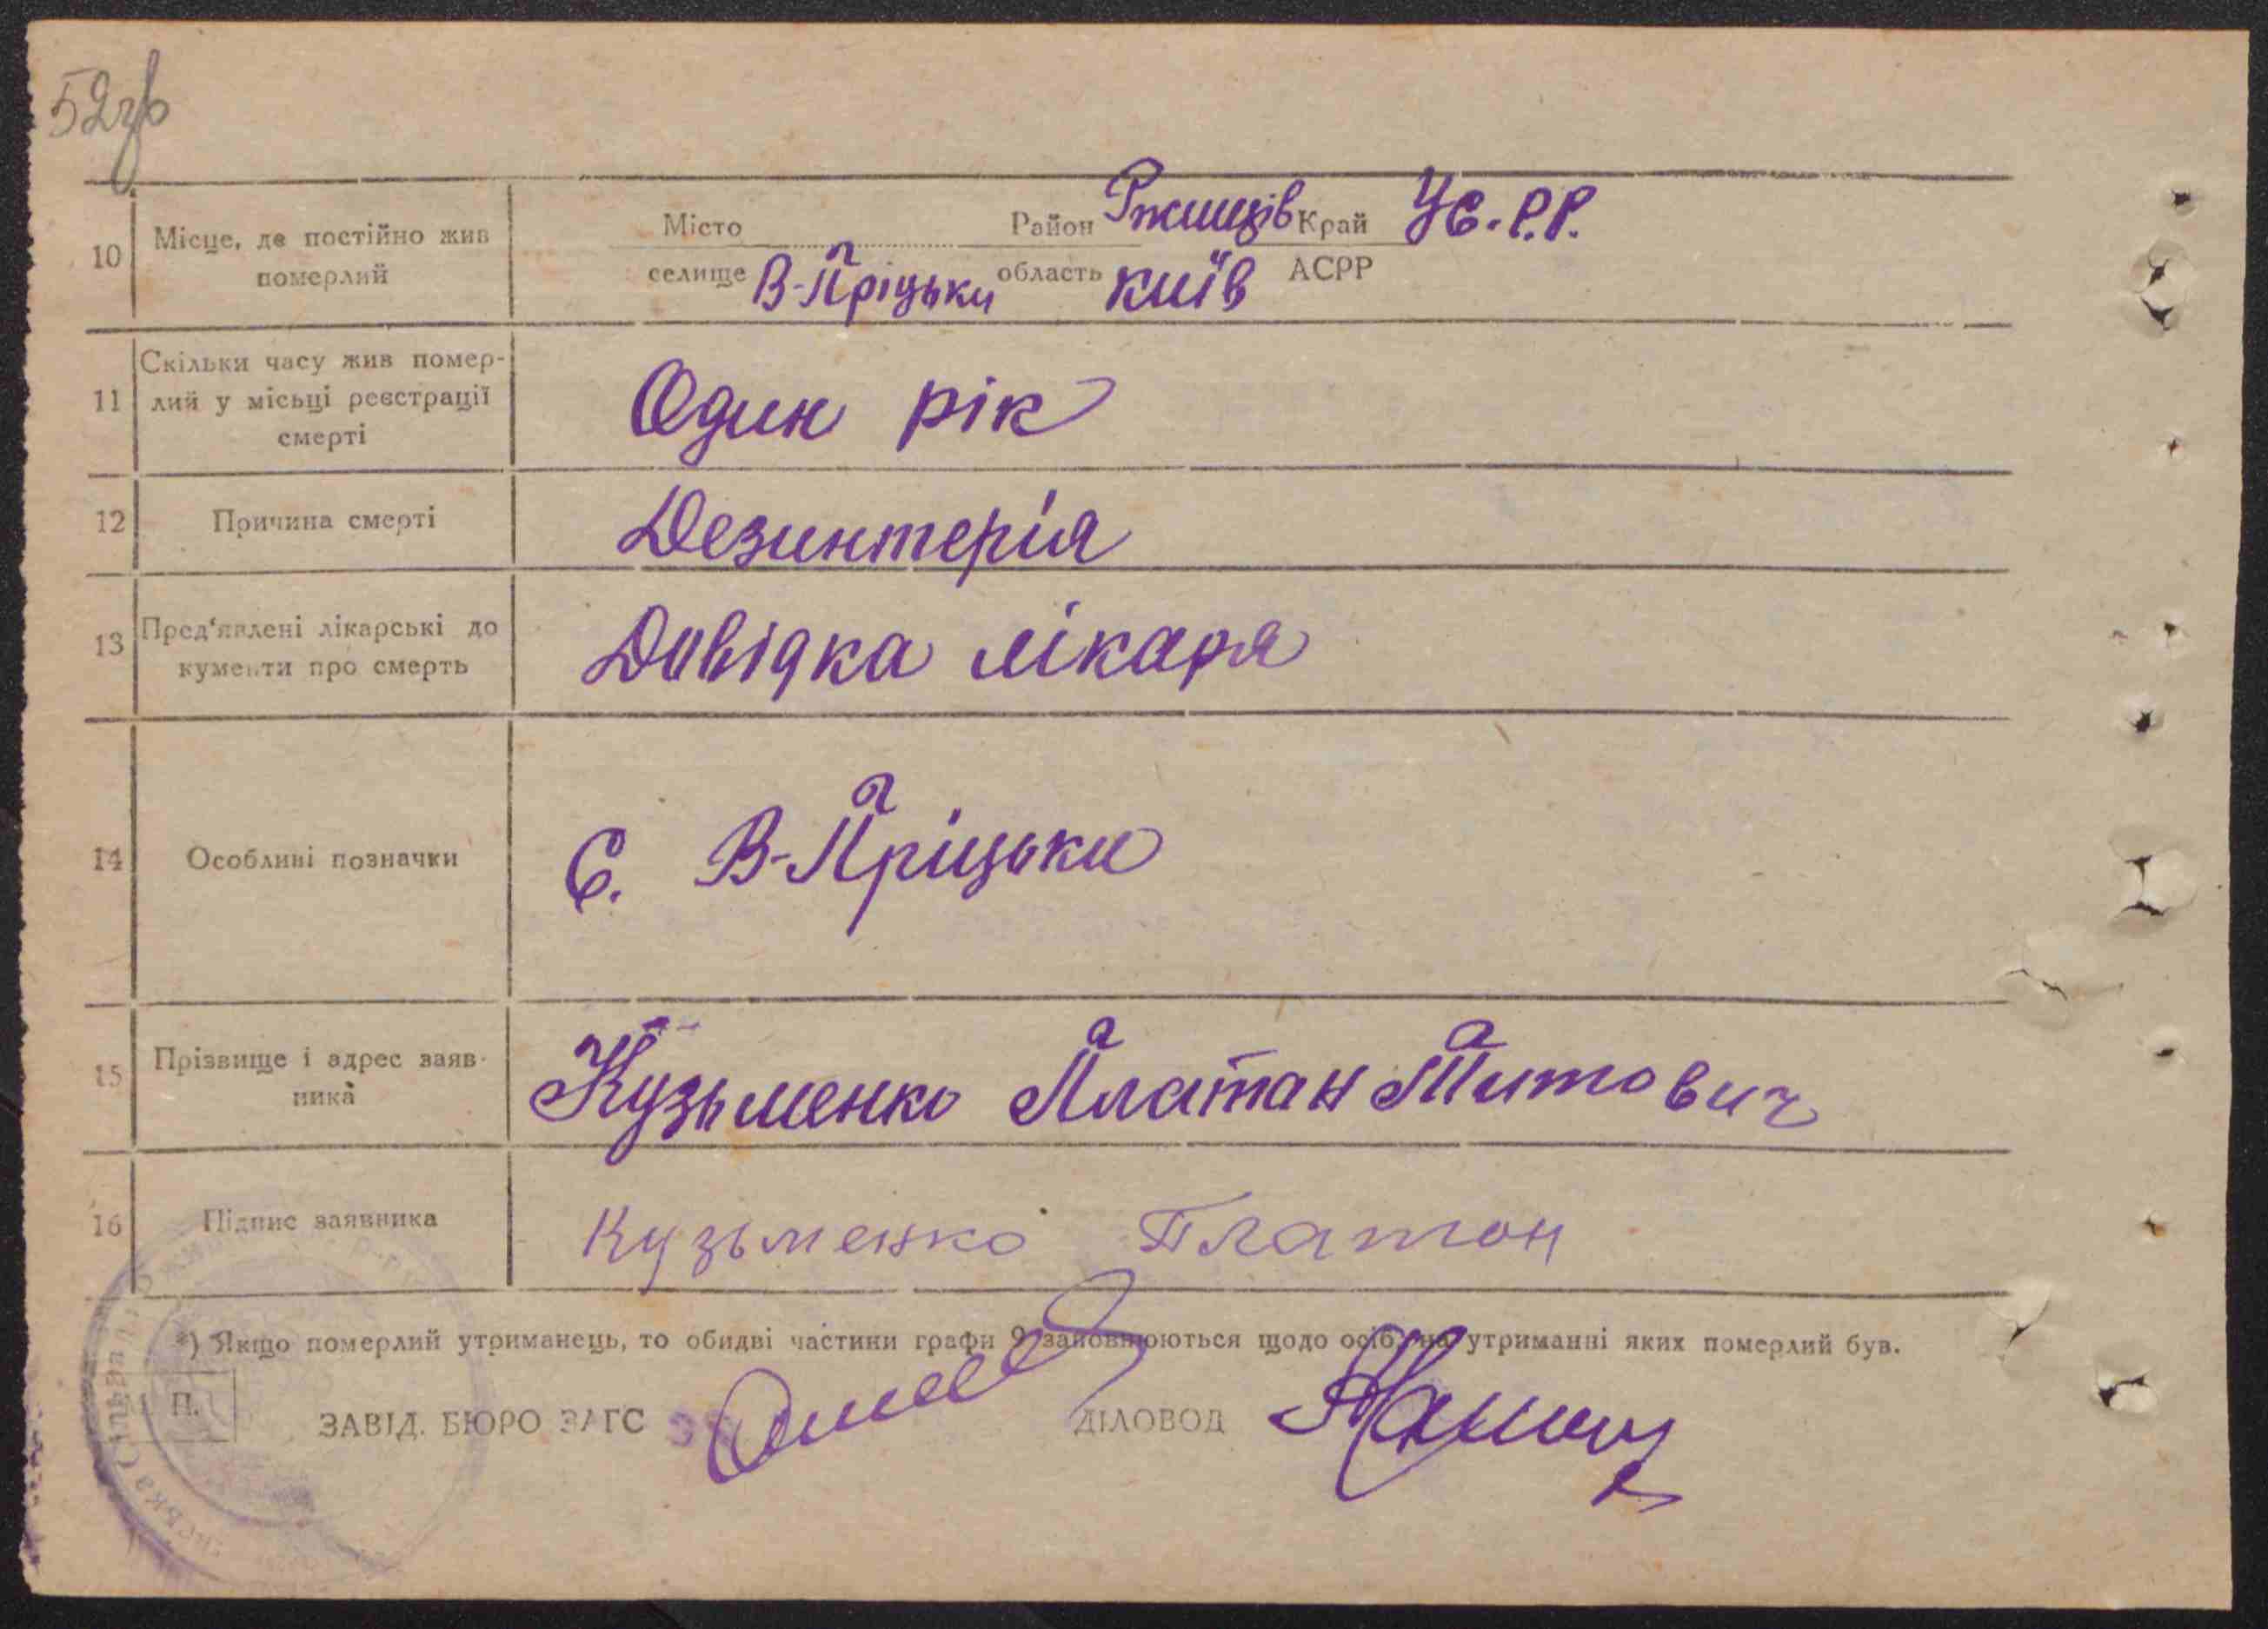 52зв
10 Місце, де постійно жив померлий
Місто Район Ржищів Край УС.Р.Р.
селище В-Пріцьки область Київ АСРР
11 Скільки часу жив помер-
лий у місьці реєстрації
смерті
Один рік
12 Причина смерті Дезинтерія
13 Пред'явлені лікарські до
кументи про смерть
Довідка лікаря
14 Особливі позначки С. В-Пріцьки
15 Прізвище і адрес заяв-
ника
Кузьменко Платан Титович
16 Підпис заявника Кузьменко Платон
*) Якщо померлий утриманець, то обидві частини графи 9 заповнюються щодо осіб, на утриманні яких померлий був.
М П.
ЗАВІД. БЮРО ЗАГС ДІЛОВОД